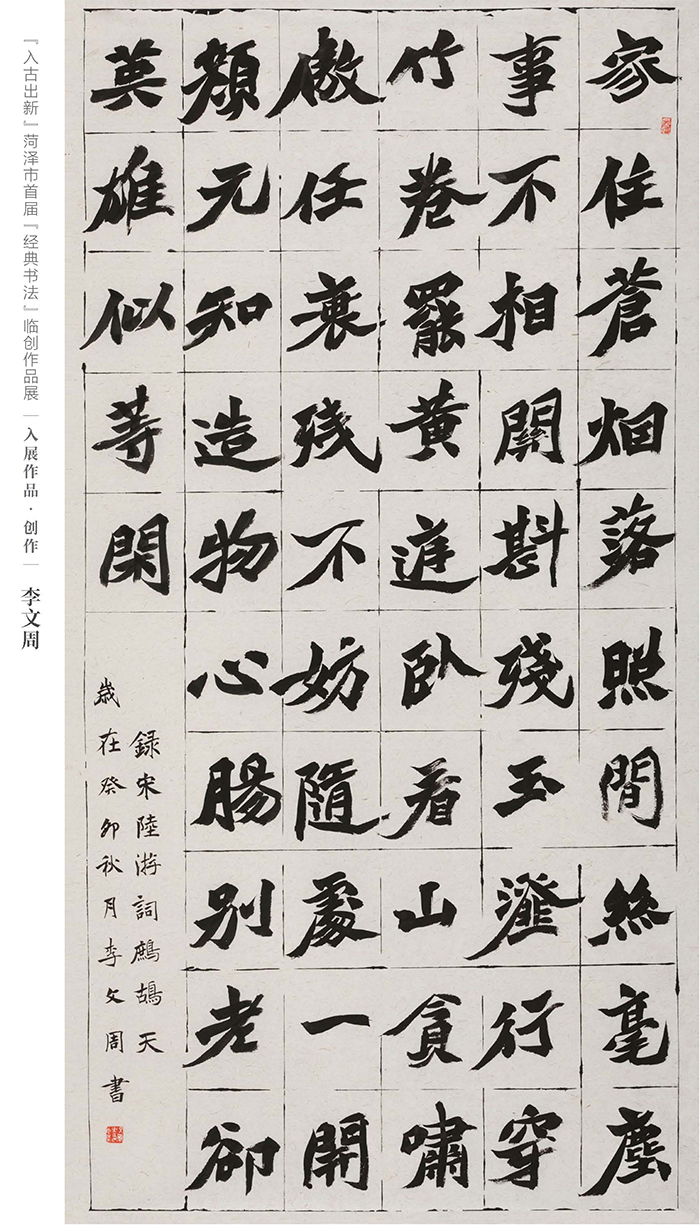 家住蒼烟落照間絲毫塵
事不相關斟殘玉瀣行穿
竹卷罷黃庭卧看山貪嘯
傲任衰殘不妨隨處一開
顏元知造物心腸别老卻
英雄似等閑
録宋陸游詞鷓鴣天
歲在癸卯秋月李文周書
『入古出新』菏泽市首届『经典书法』临创作品展｜入展作品·创作｜李文周